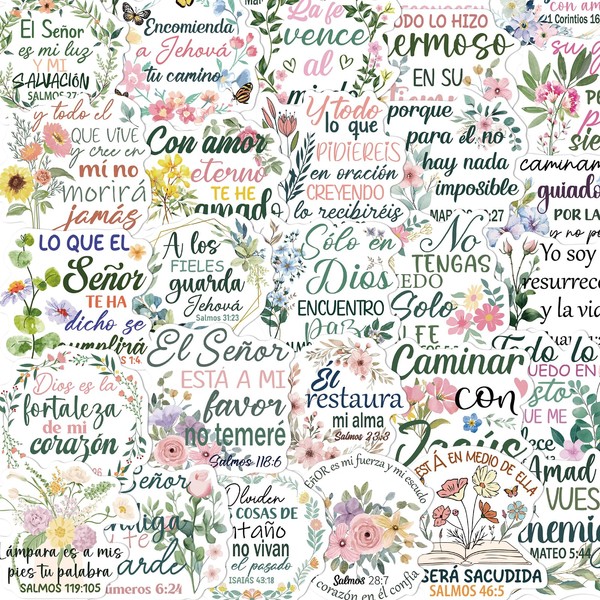 El Señor
es mi luz
Y MI
SALVACIÓN
SALMOS 27
Encomienda
a Jehová
tu camino
La fe
vence
al
TODO LO HIZO
hermoso
EN SU
con am
1 Corintios 16
su g
y todo el
QUE VIVE
y cree en
mí no
morirá
jamás
Con amor
eterno
TE HE
amado
Y todo
lo que
PIDIEREIS
en oración
CREYENDO
lo recibiréis
porque
para él no
hay nada
imposible
:27
caminam
guiado
POR LA
y no p
LO QUE EL
Señor
TE HA
dicho se
cumplirá
S 1:4
A los
FIELES
guarda
Jehová
Salmos 31:23
Sólo en
Dios
ENCUENTRO
PAZ
No
TENGAS
EDO
Solo
FE
Yo soy
resurrecc
y la vida
Dios es la
fortaleza
de mi
corazón
El Señor
ESTÁ A MI
favor
no temeré
Salmos 118:6
Él
restaura
mi alma
Salmos 23:3
Caminar
con
Jesús
Todo lo
UEDO EN
sto
UE ME
lece
Lámpara es a mis
pies tu palabra
SALMOS 119:105
Señor
te
úmeros 6:24
Olviden
AS COSAS DE
ANTAÑO
no vivan
el pasado
ISAÍAS 43:18
SEÑOR es mi fuerza y mi escudo
corazón en él confía
Salmos 28:7
ESTÁ EN MEDIO DE ELLA
SERÁ SACUDIDA
SALMOS 46:5
Amad
VUES
enemig
MATEO 5:44